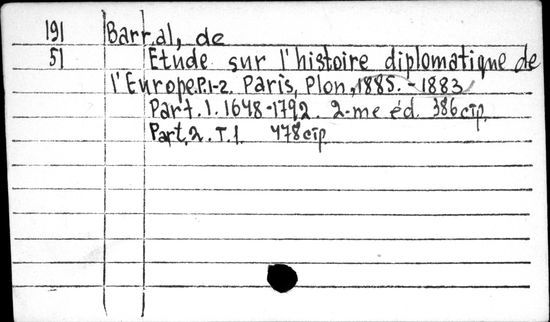 191 Barral, de
51 Etude sur l'histoire diplomatique de
l'Europe.P.1-2. Paris, Plon, 1885.-1883
Part.1. 1648-1792. 2-me éd. 386 стр.
Part.2. T.1. 478 стр.